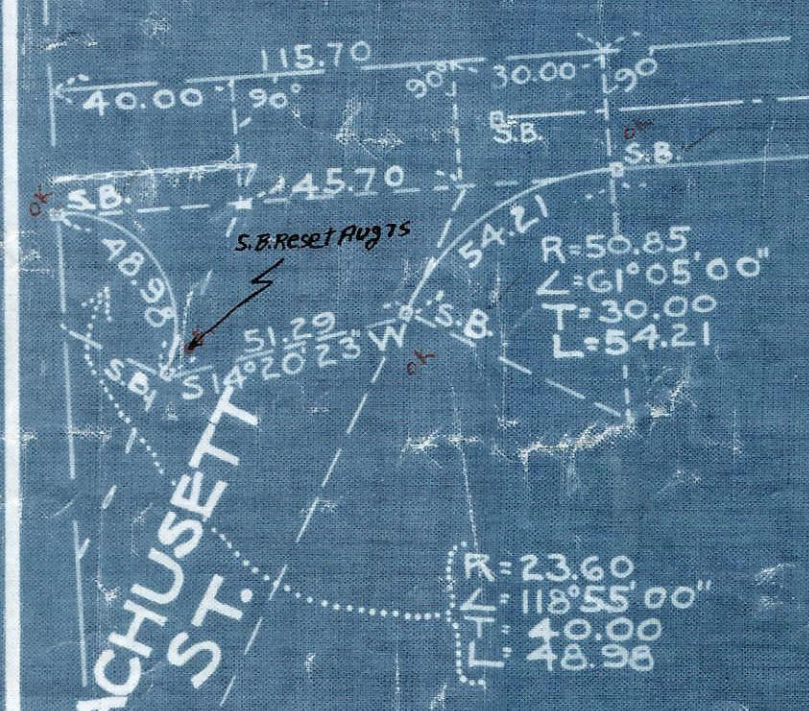 115.70
40.00
90°
90°
30.00
90
S.B.
ok
S.B.
45.70
ok
S.B.
54.21
48.98
S.B. Reset Aug 75
R=50.85
∠=61°05'00"
T=30.00
L=54.21
51.29
S 14°20'23" W
S.B.
ok
S.B.
ACHUSETT
ST.
R=23.60
∠=118°55'00"
T=40.00
L=48.98